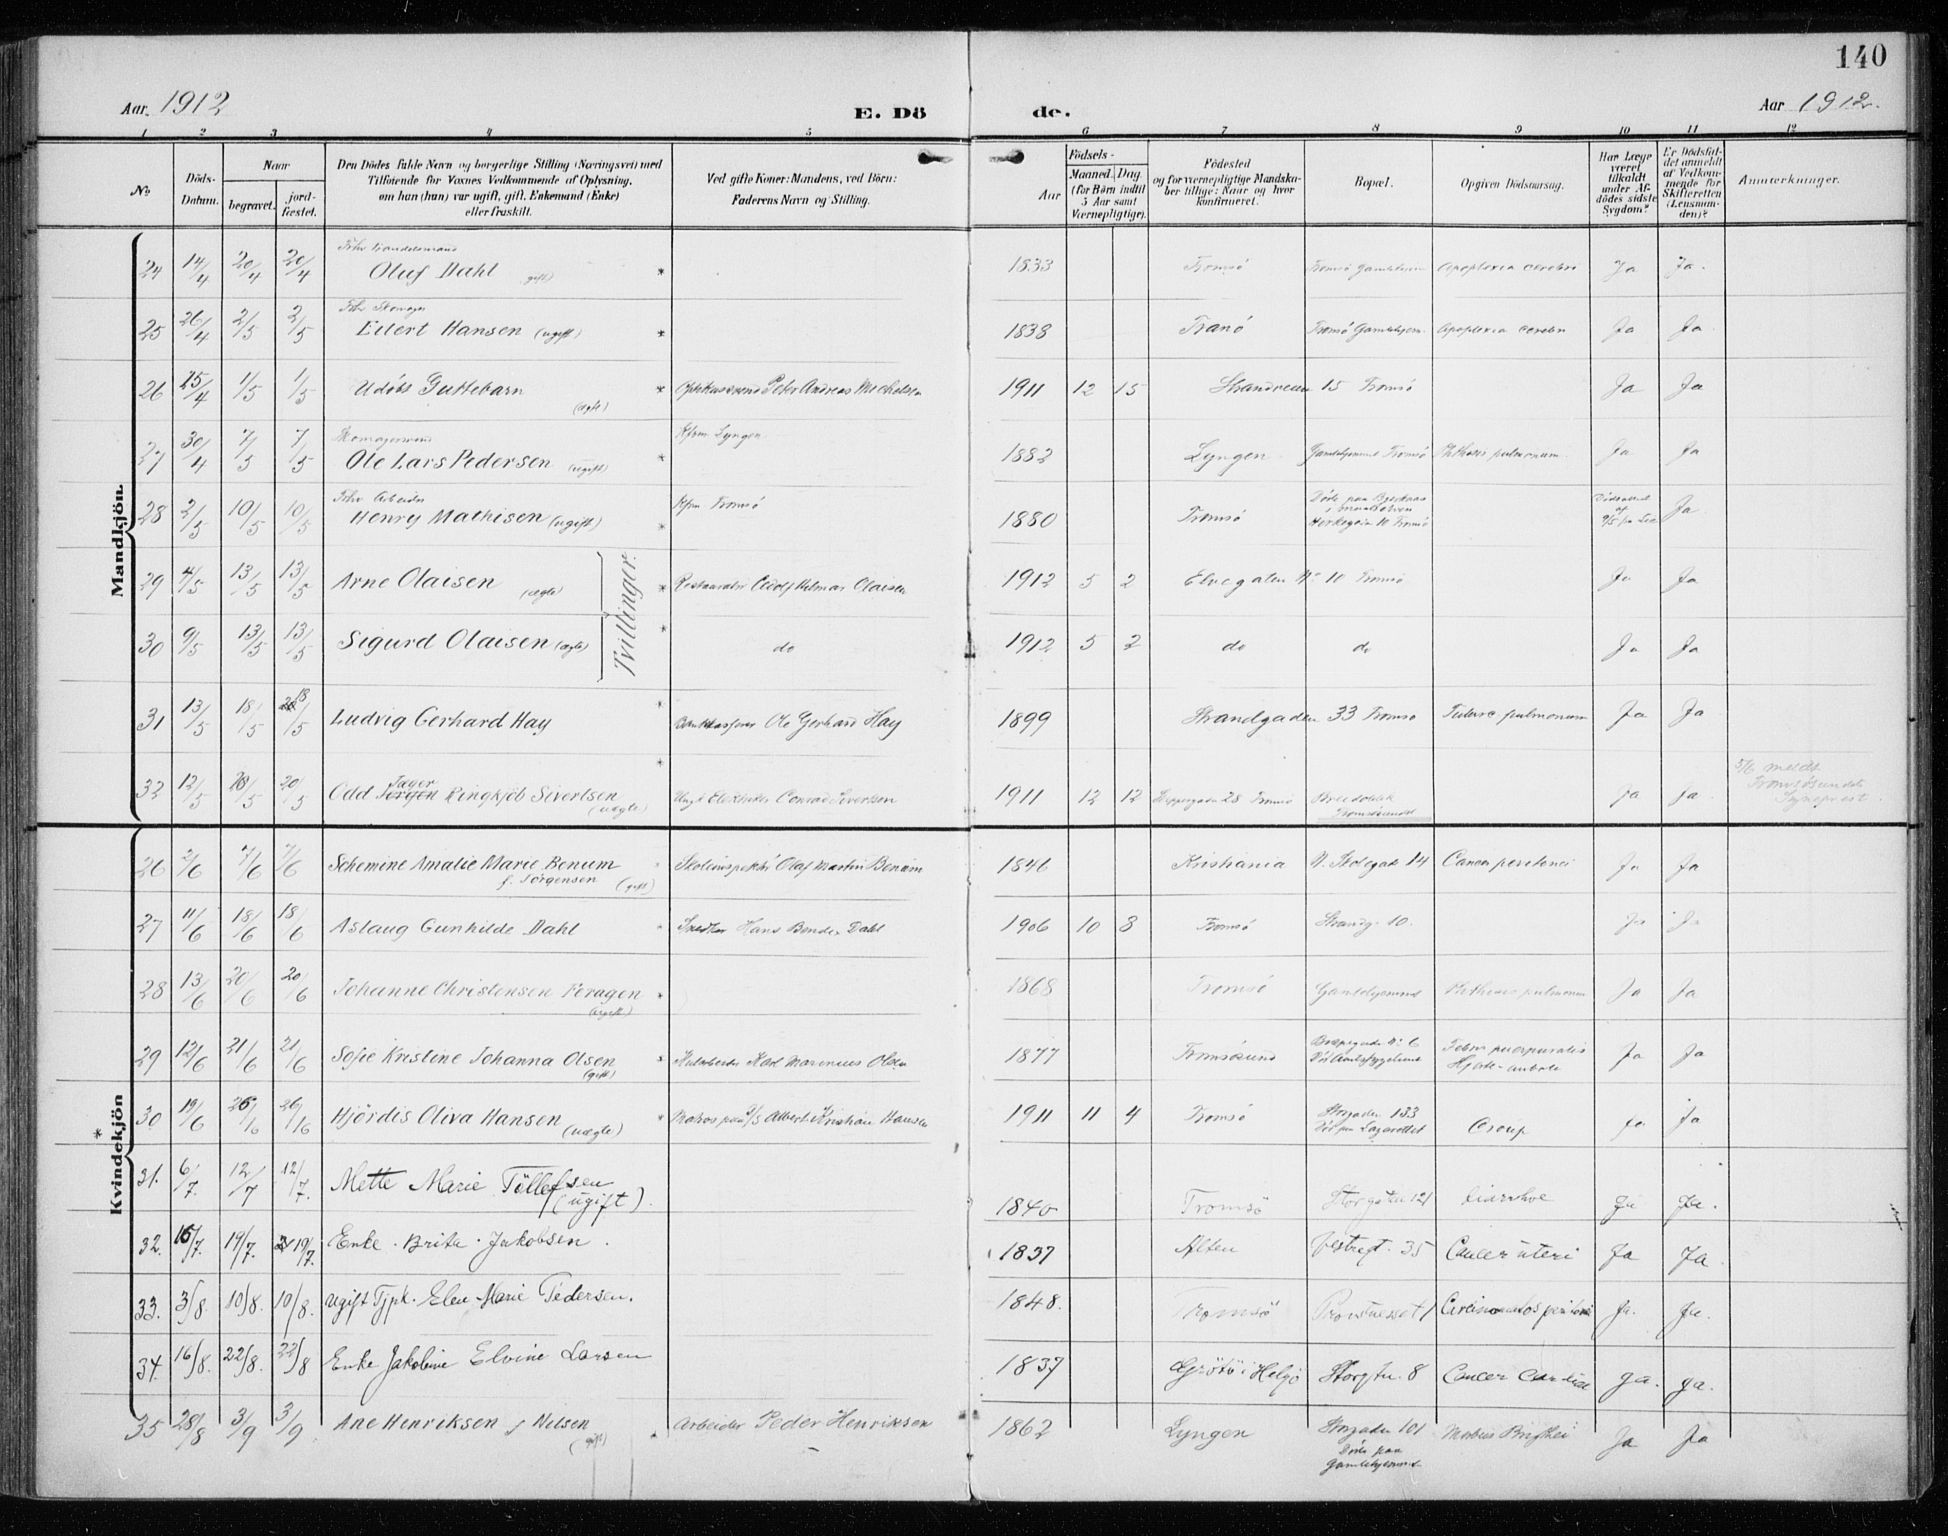 140
Aar. 1912
E. Dö de.
Aar 1912.
1 2 3 4 5 6 7 8 9 10 11 12
No
Döds-Datum.
Naar
begravet.
jord-fæstet.
Den Dödes fulde Navn og borgerlige Stilling (Næringsvei) med
Tilföiende for Voxnes Vedkommende af Oplysning,
om han (hun) var ugift, gift, Enkemand (Enke)
eller fraskilt.
Ved gifte Koner: Mandens, ved Börn:
Faderens Navn og Stilling.
Födsels-
Aar
Maaned. Dag.
(for Börn indtil
5 Aar samt
Værnepligtige).
Födested
og for værnepligtige Mandska-
ber tillige: Naar og hvor
konfirmeret.
Bopæl.
Opgiven Dödsaarsag.
Har Læge
været
tilkaldt
under Af-
dödes sidste
Sygdom?
Er Dödsfal-
det anmeldt
af Vedkom-
mende for
Skifteretten
(Lensman-
den)?
Anmærkninger.
Mandkjön.
24 14/4 20/4 20/4 Fhv Handelsmand
Oluf Dahl (gift) * 1833 Tromsö Tromsö Gamlehjem Apoplexia cerebri Ja Ja.
25 26/4 2/5 2/5 Fhv Skomager
Eilert Hansen (ugift) * 1838 Tranö Tromsö Gamlehjem Apoplexia cerebri Ja Ja
26 25/4 1/5 1/5 Udöbt Guttebarn (ægte) * Peter Andreas 1911 12 15 15 Tromsö Ja Ja
27 30/4 7/5 7/5 Skomagersvend
Ole Lars Pedersen (ugift) * Kfrm. Lyngen 1882 Lyngen Gamlehjemmet Tromsö Phthisis pulmonum. Ja Ja
28 2/5 10/5 10/5 Fhv Arbeider
Henry Mathisen (ugift) * Kfrm Tromsö 1880 Tromsö Döde paa 10 Tromsö Ja
29 4/5 13/5 13/5 Arne Olaisen (ægte) Tvillinger. * Hilmar Olaisen 1912 5 2 Elvegaten No 10 Tromsö Ja Ja
30 9/5 13/5 13/5 Sigurd Olaisen (ægte) * do 1912 5 2 do do Ja Ja
31 13/5 18/5 18/5 Ludvig Gerhard Hay * Ole Gerhard Hay 1899 Strandgaden 33 Tromsö pulmonum Ja Ja
32 12/5 20/5 20/5 Odd Jæger Jörgen Ringkjöb Sivertsen (uægte) * Ungk Elektriker Conrad Sivertsen 1911 12 12 Skippergaden 28 Tromsö Tromsösund Ja Ja 5/6 meldt
Tromsösundets
Sogneprest
Kvindekjön *
26 2/6 7/6 7/6 Schemine Amalie Marie Benum
f. Jörgensen (gift) Skoleinspektör Olaf Martin Benum 1846 Kristiania N. Skolegade 14 Cancer peritonei Ja Ja
27 11/6 18/6 18/6 Aslaug Gunhilde Dahl * Snedker Hans Dahl 1906 10 8 Tromsö Strandg. 10. Ja Ja
28 13/6 20/6 20/6 Johanne Christensen Feragen (ugift) * 1868 Tromsö Gamlehjemmet Phthisis pulmonum Ja Ja
29 12/6 21/6 21/6 Sofie Kristine Johanna Olsen (gift) * Karl Marinius Olsen 1877 Tromsösund No 6
Febris puerperalis Ja Ja
30 19/6 26/6 26/6 Hjördis Oliva Hansen (uægte) * Matros paa D/S Albert Kristian Hansen 1911 11 4 Tromsö Storgaden 133
Död paa Lazarettet Croup Ja Ja
31. 6/7. 12/7 12/7. Mette Marie Töllefsen
(ugift). 1840 Tromsö Storgaten 121 Diarrhoe Ja Ja.
32. 16/7. 19/7. 19/7. Enke. Brita. Jakobsen. 1837 Alten Vestregt. 35 Cancer uteri Ja Ja
33. 3/8. 10/8. 10/8. Ugift Tjpk. Elen-Marie Pedersen. 1848. Tromsö Ja. Ja.
34. 16/8. 22/8. 22/8 Enke Jakobine Elvine Larsen 1837 Grötö i Helgö Storgtn. 8 Cancer Cardiae Ja. Ja.
35 28/8 3/9 3/9. Ane Henriksen f Nilsen (gift) * Arbeider Peder Henriksen 1862 Lyngen Storgaden 101
Döde paa
Gamlehjemmet Morbus Brigthii Ja Ja